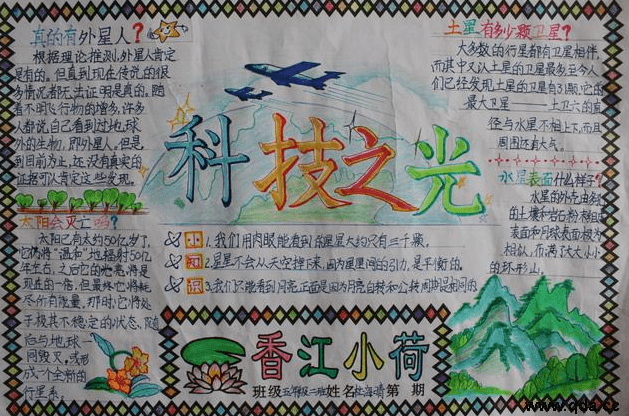 真的有外星人?
根据理论推测,外星人肯定
是有的。但真到现在传说的很
多情况都无法证明是真的。随
着不明飞行物的增多,许多
人都说自己看到过地球
外的生物,即外星人。但是,
到目前为止,还没有真实的
证据可以肯定这些发现。
太阳会灭亡吗?
太阳已有大约50亿岁了,
它仍将"温和"地辐射50亿
年左右,之后它的
现在的一倍,但最终它将耗
尽所有能量,那时,它将处
于极其不稳定的状态,随
后与地球一
同毁灭,或形
成一个全新的
行星系。
科技之光
小 1.我们用肉眼能看到的星星大约只有三千颗。
知 2.星星不会从天空掉下来,因为星星间的引力,是平衡的。
识 3.我们只能看到月亮正面是因为月亮自转和公转周期是相同的
香江小荷
班级五年级二班姓名杜海晴第 期
土星有多少颗卫星?
大多数的行星都有卫星相伴,
而其中又以土星的卫星最多至今人
们已经发现土星的卫星有31颗,它的
最大卫星——土卫六的直
径与水星不相上下,而且
周围还有大气。
水星表面什么样子?
水星的外壳由多
的土壤和岩石粉末组成
表面和月球表面极为
相似,布满了大大小小
的环形山。
www.qdx.cc